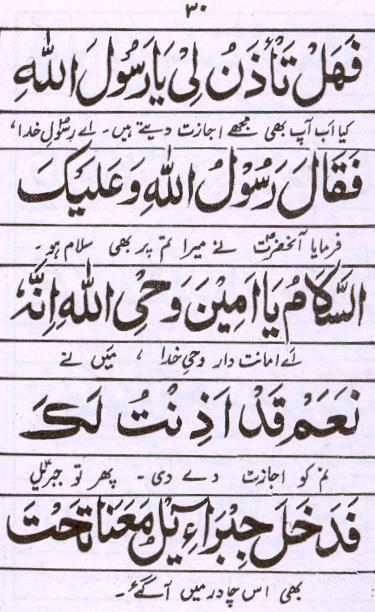 ٣٠
فَهَلْ تَأْذَنُ لِیْ یَا رَسُوْلَ اللهِ
کیا اَب آپ بھی مجھے اجازت دیتے ہیں۔ اے رسُولِ خدا،
فَقَالَ رَسُوْلُ اللهِ وَعَلَیْكَ
فرمایا آنحضرتؐ نے میرا تم پر بھی سلام ہو۔
السَّلَامُ یَا اَمِیْنَ وَحْیِ اللهِ اِنَّہٗ
اَے امانت دار وحیِ خدا ، میَں نے
نَعَمْ قَدْ اَذِنْتُ لَكَ
تم کو اجازت دے دی۔ پھر تو جبرئیل
فَدَخَلَ جِبْرَآءِیْلُ مَعَنَا تَحْتَ
بھی اس چادر میں آ گئے۔